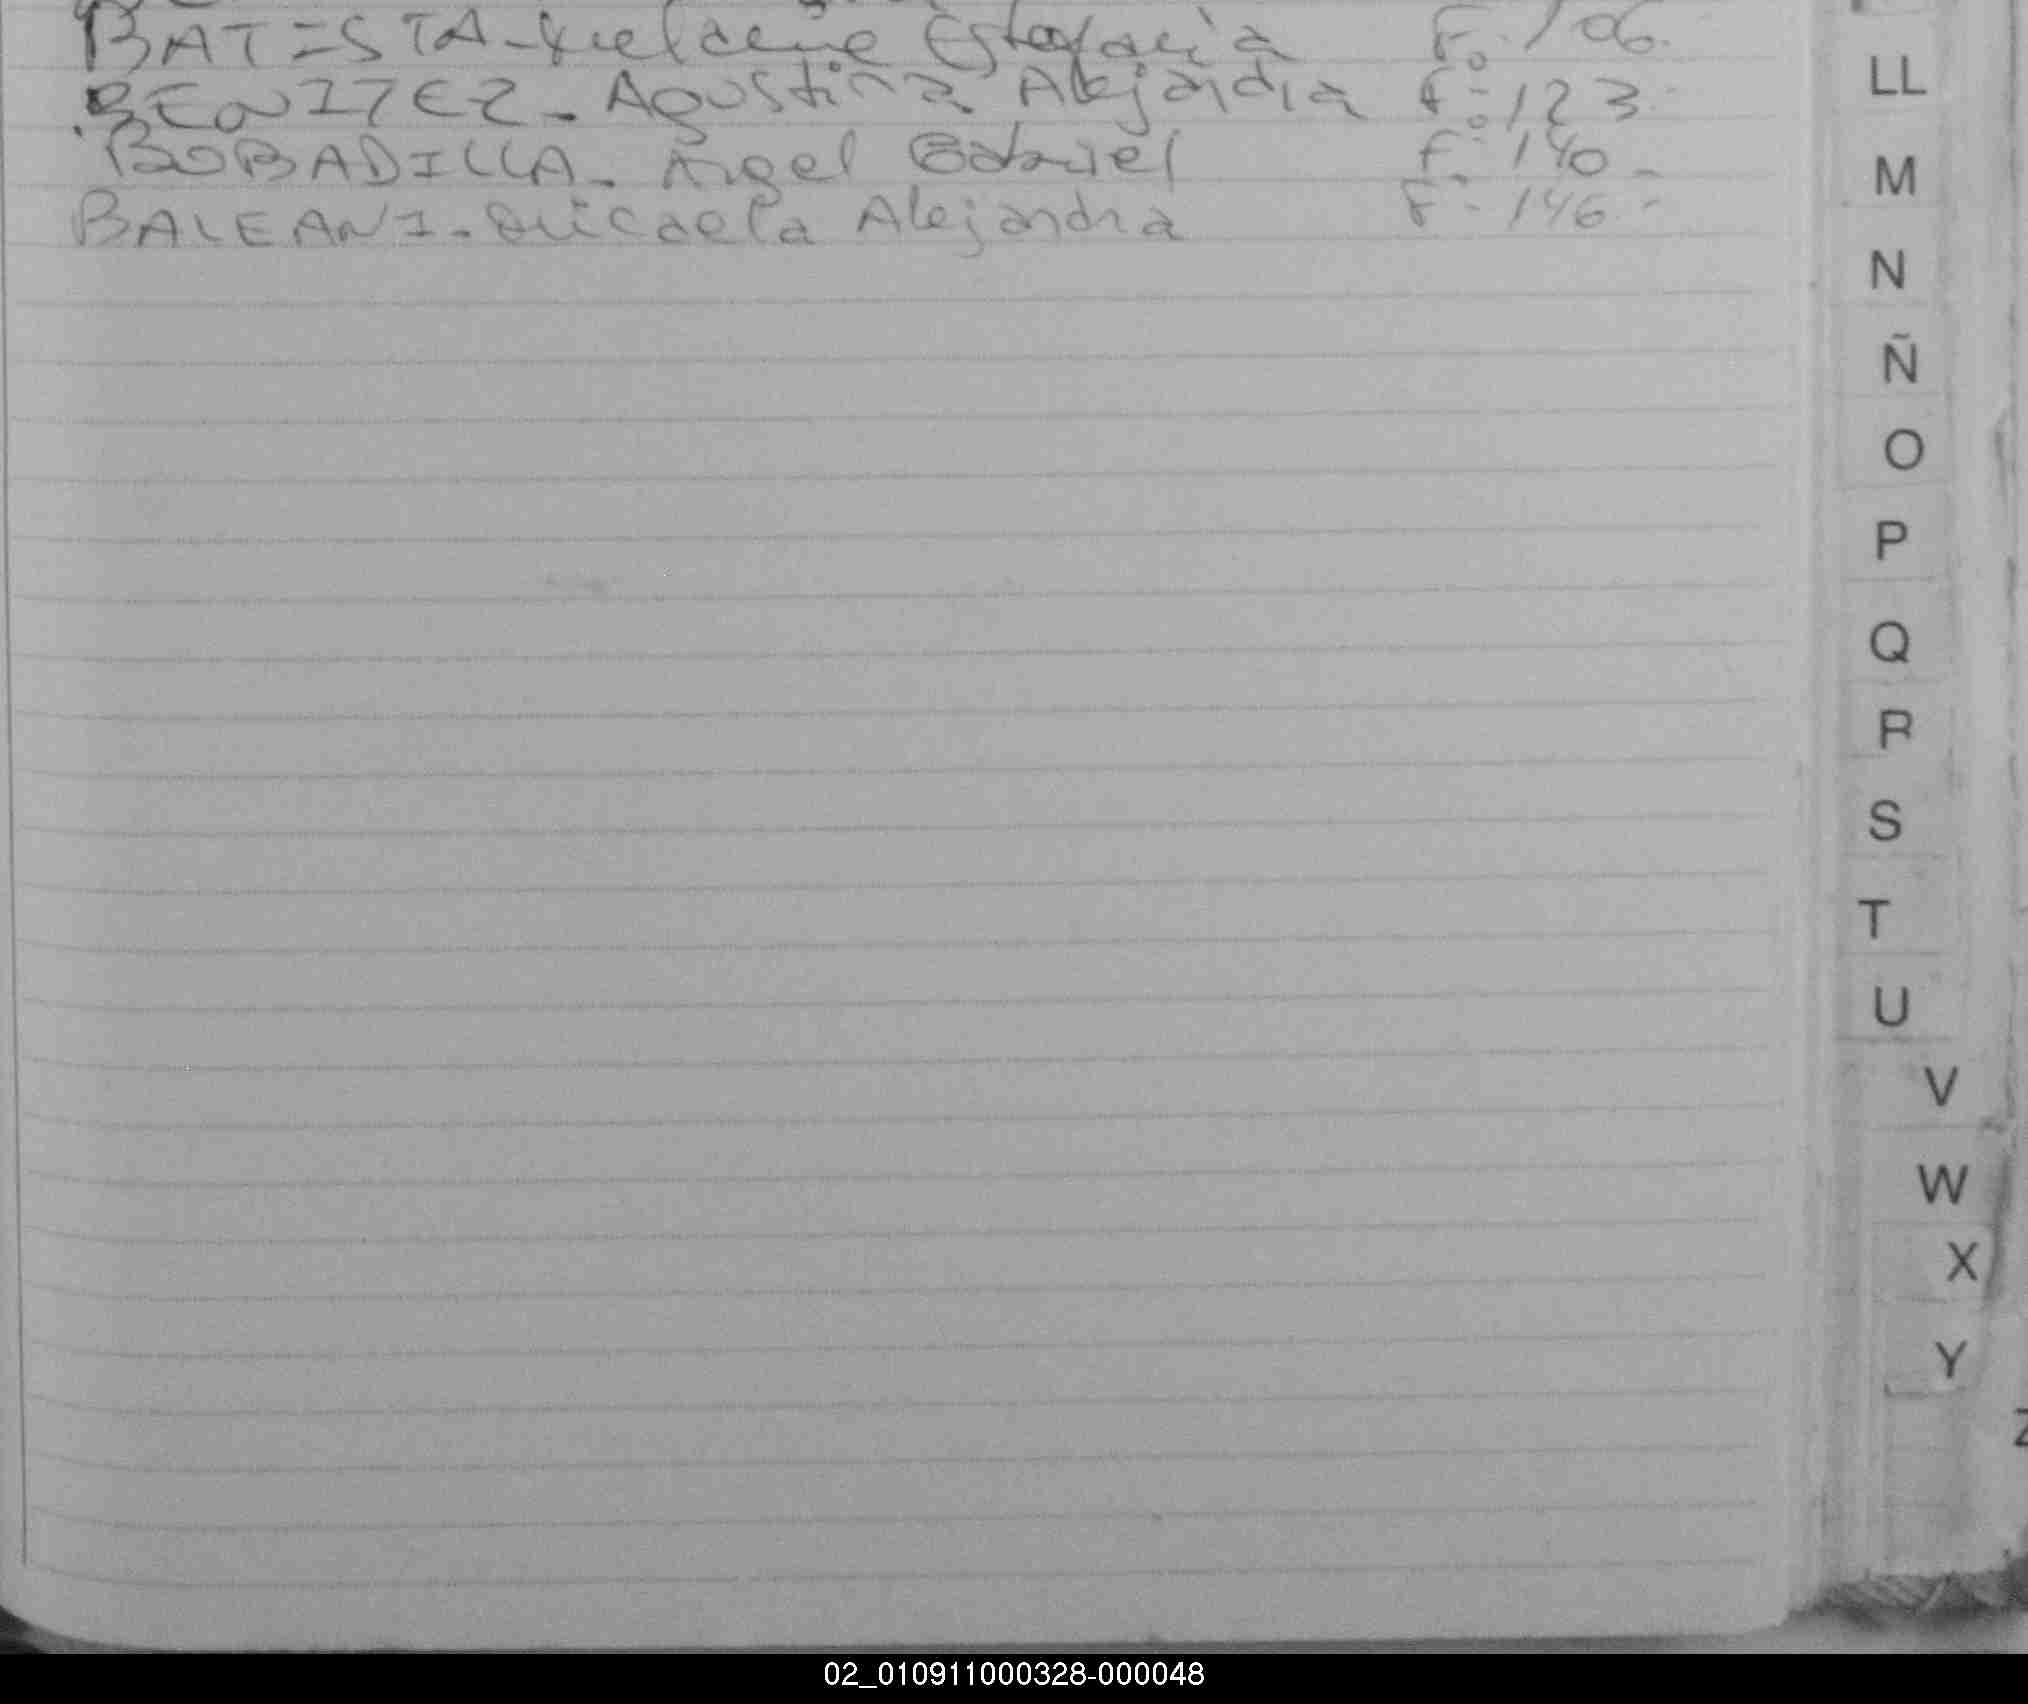 BATISTA - Estefania F: 106.
BENITEZ - Agustina Alejandra F: 123.
BOBADILLA - Angel Gabriel F: 140 -
BALEANI - Micaela Alejandra F: 146 -
LL
M
N
Ñ
O
P
Q
R
S
T
U
V
W
X
Y
Z
02_010911000328-000048